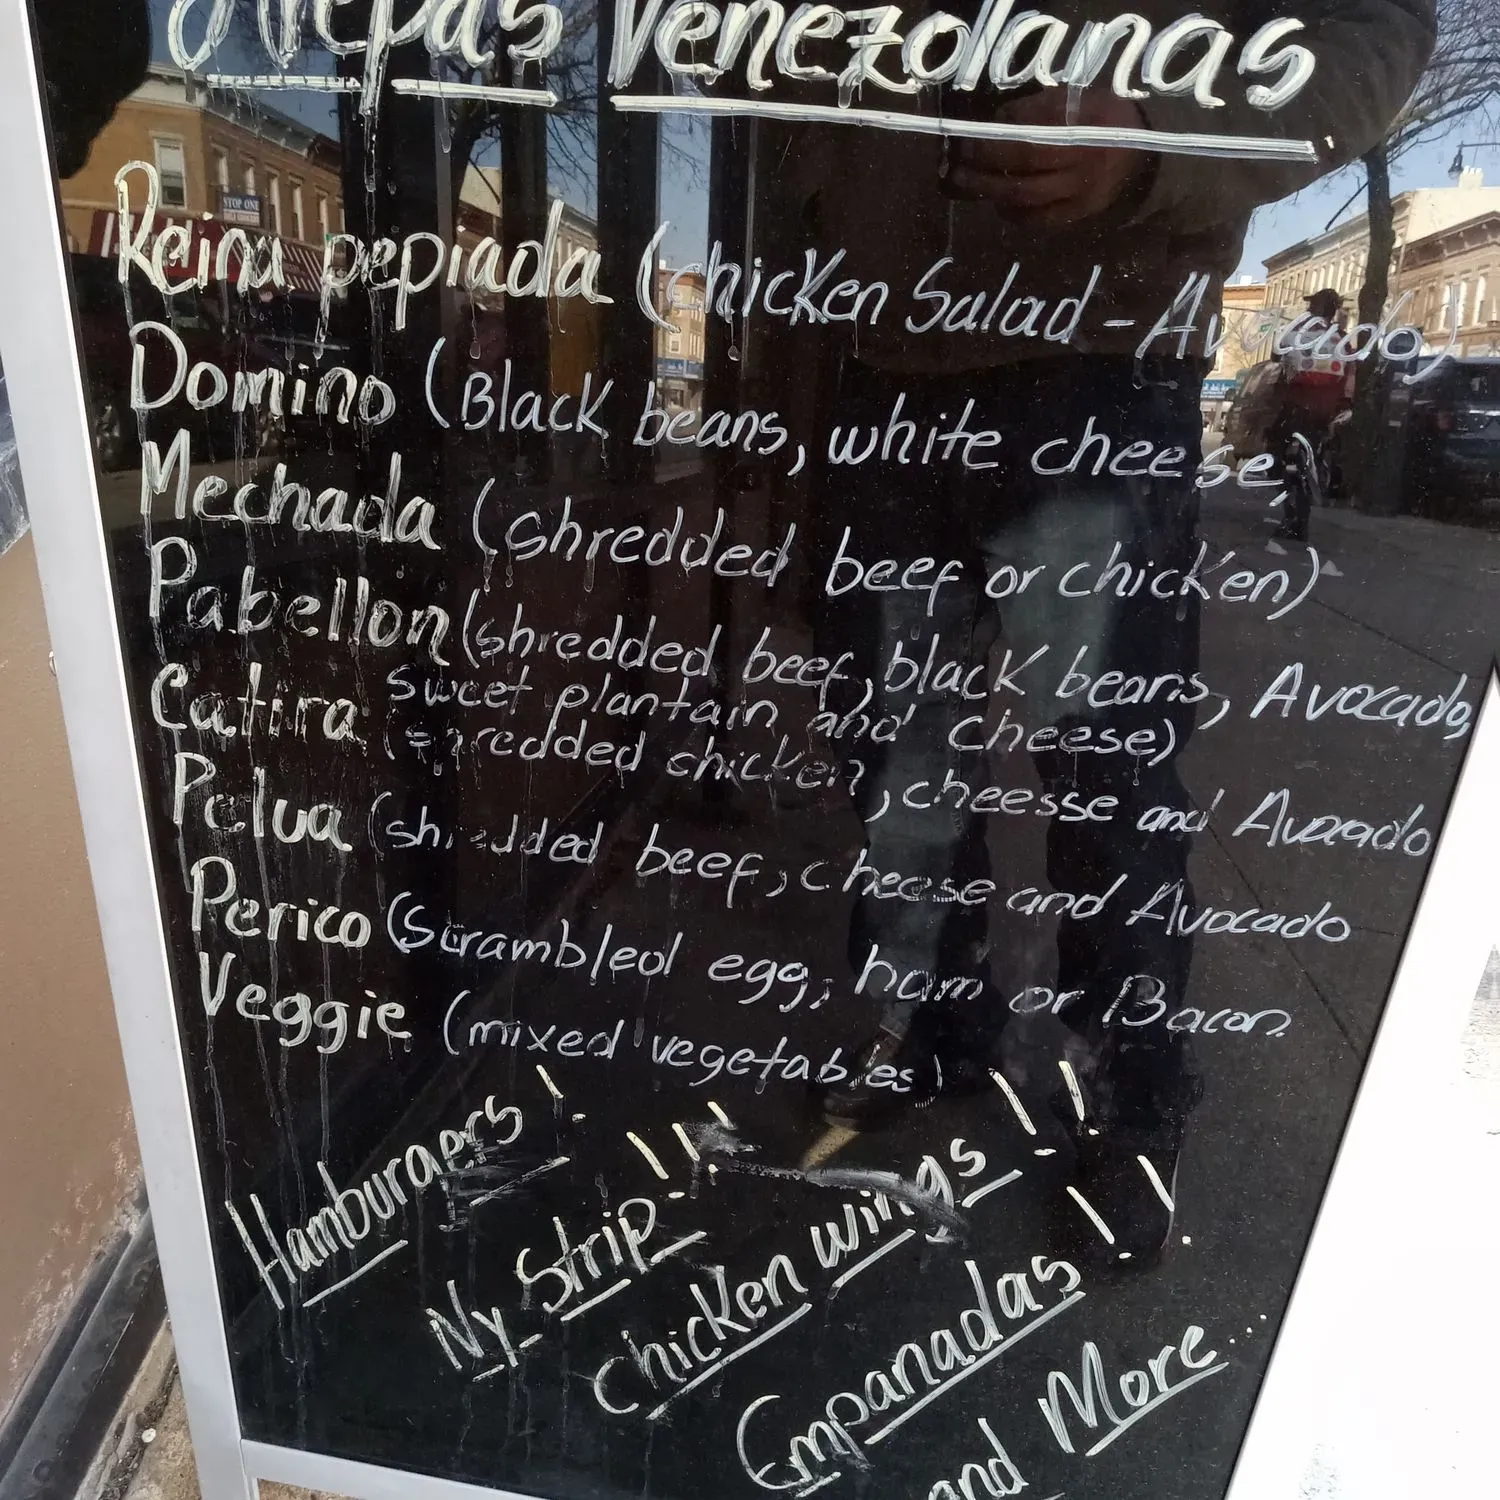 Arepas Venezolanas
STOP ONE
Reina pepiada (chicken Salad - Avocado)
Domino (Black beans, white cheese,)
Mechada (shredded beef or chicken)
Pabellon (shredded beef, black beans, Avocado,
sweet plantain and cheese)
Catira (shredded chicken, cheesse and Avocado
Pelua (shredded beef, cheese and Avocado
Perico (Scrambled egg, ham or Bacon
Veggie (mixed vegetables)
Hamburgers!
Ny Strip!!!
chicken wings!!
Empanadas!!
and More...